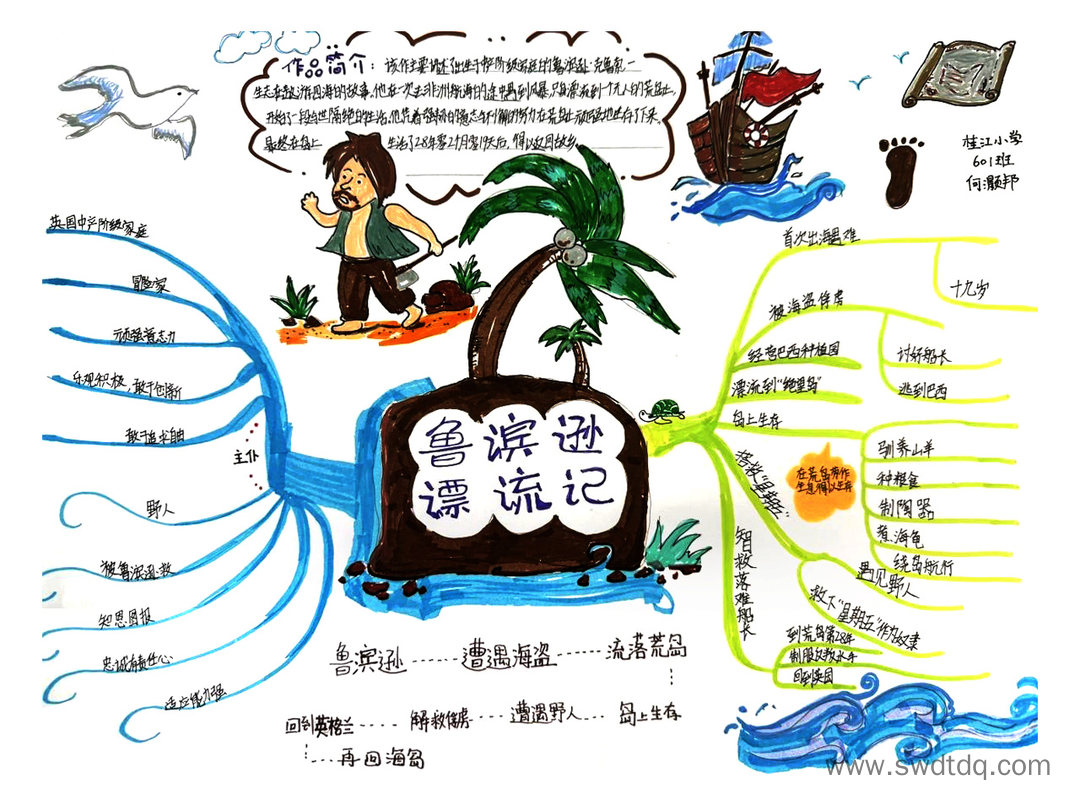 作品简介：该作主要讲述了出生于中产阶级家庭的鲁滨逊·克鲁索一
生志在遨游四海的故事。他在一次去非洲航海的途中遇到风暴，只身漂流到一个无人的荒岛上，
开始了一段与世隔绝的生活。他凭着强韧的意志与不懈的努力在荒岛上顽强地生存了下来，
最终在岛上生活了28年零2个月零19天后，得以返回故乡。
桂江小学
601班
何灏邦
鲁滨逊
漂流记
英国中产阶级家庭
冒险家
顽强毅志力
乐观积极，敢于创新
敢于追求自由
主仆
野人
被鲁滨逊救
知恩图报
忠诚有责任心
适应能力强
首次出海遇难
十九岁
被海盗俘虏
讨好船长
逃到巴西
经营巴西种植园
漂流到“绝望岛”
岛上生存
驯养山羊
种粮食
制陶器
煮海龟
绕岛航行
在荒岛劳作
生息得以生存
搭救“星期五”
遇见野人
救下“星期五”作为奴隶
智救落难船长
到荒岛第28年
制服反叛水手
回到英国
鲁滨逊……遭遇海盗……流落荒岛
回到英格兰……解救俘虏……遭遇野人……岛上生存
……再回海岛
www.swdtdq.com